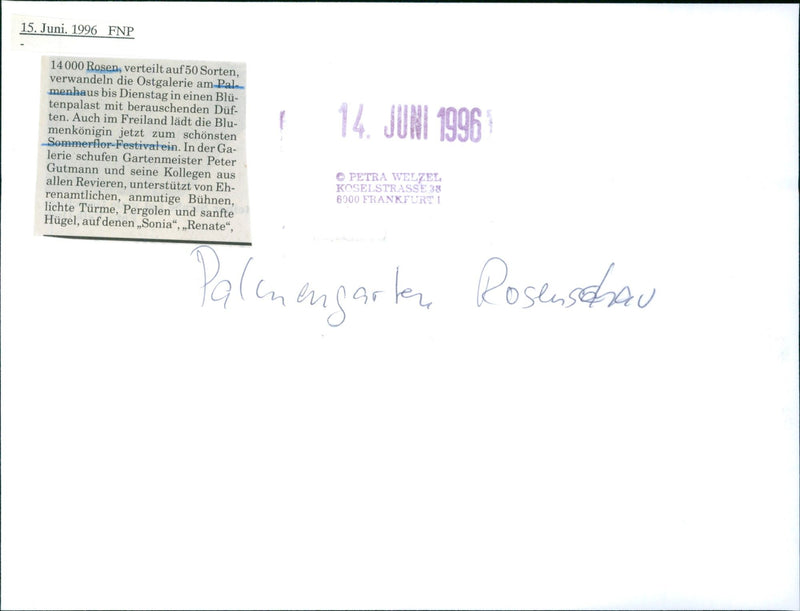 15. Juni. 1996 FNP
14 000 Rosen, verteilt auf 50 Sorten,
verwandeln die Ostgalerie am Pal-
menhaus bis Dienstag in einen Blü-
tenpalast mit berauschenden Düf-
ten. Auch im Freiland lädt die Blu-
menkönigin jetzt zum schönsten
Sommerflor-Festival ein. In der Ga-
lerie schufen Gartenmeister Peter
Gutmann und seine Kollegen aus
allen Revieren, unterstützt von Eh-
renamtlichen, anmutige Bühnen,
lichte Türme, Pergolen und sanfte
Hügel, auf denen „Sonia“, „Renate“,
14. JUNI 1996
© PETRA WELZEL
KOSELSTRASSE 38
6000 FRANKFURT 1
Palmengarten Rosenschau